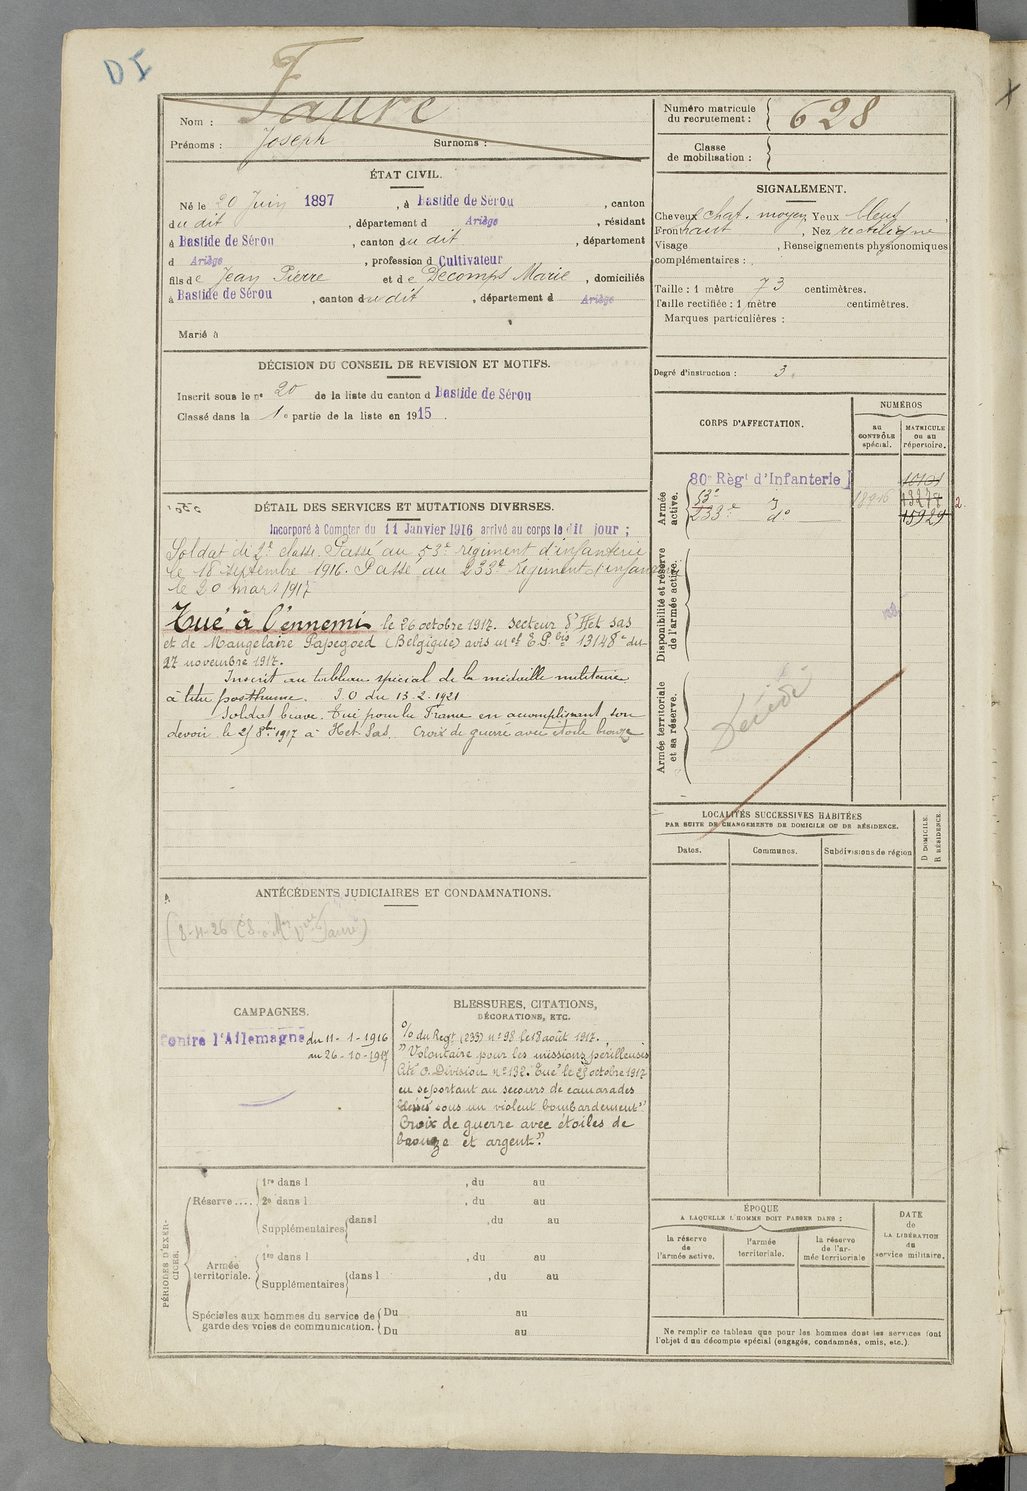 DI
Nom : Faure
Prénoms : Joseph Surnoms :
Numéro matricule du recrutement : 628
Classe de mobilisation :
ÉTAT CIVIL.
Né le 20 Juin 1897, à Bastide de Sérou, canton
du dit, département d Ariège, résidant
à Bastide de Sérou, canton du dit, département
d Ariège, profession d Cultivateur
fils de Jean Pierre et de Decomps Marie, domiciliés
à Bastide de Sérou, canton du dit, département d Ariège
Marié à
SIGNALEMENT.
Cheveux chat. moyen Yeux bleus
Front haut, Nez rectiligne
Visage , Renseignements physionomiques
complémentaires :
Taille : 1 mètre 73 centimètres.
Taille rectifiée : 1 mètre centimètres.
Marques particulières :
Degré d'instruction : 3.
DÉCISION DU CONSEIL DE REVISION ET MOTIFS.
Inscrit sous le n° 20 de la liste du canton d Bastide de Sérou
Classé dans la 1e partie de la liste en 1915.
CORPS D'AFFECTATION.
NUMÉROS
au CONTRÔLE spécial.
MATRICULE ou au répertoire.
Armée active.
80e Régt d'Infanterie
53e
233e do
13277
15929
2.
Disponibilité et réserve de l'armée active.
Armée territoriale et sa réserve.
Décédé
DÉTAIL DES SERVICES ET MUTATIONS DIVERSES.
Incorporé à Compter du 11 Janvier 1916 arrivé au corps le dit jour ;
Soldat de 2e classe. Passé au 53e régiment d'infanterie
le 18 septembre 1916. Passé au 233e Régiment d'infanterie
le 20 mars 1917
Tué à l'ennemi le 26 octobre 1917. secteur d'Het sas
et de Mangelaire Papegoed (Belgique) avis mel E.P. bis 13148e du
27 novembre 1917.
Inscrit au tableau spécial de la médaille militaire
à titre posthume. J.O du 13.2.1921
Soldat brave. Tué pour la France en accomplissant son
devoir le 25 8bre 1917 à Het-Sas. Croix de guerre avec étoile bronze
LOCALITÉS SUCCESSIVES HABITÉES
PAR SUITE DE CHANGEMENTS DE DOMICILE OU DE RÉSIDENCE.
Dates.
Communes.
Subdivisions de région
D DOMICILE.
R RÉSIDENCE.
ANTÉCÉDENTS JUDICIAIRES ET CONDAMNATIONS.
CAMPAGNES.
Contre l'Allemagne du 11-1-1916
au 26-10-1917
BLESSURES, CITATIONS,
DÉCORATIONS, ETC.
O/ du Regt (233) n° 98 le 18 août 1917.
"Volontaire pour les missions périlleuses
Cité O. Division n° 132. Tué le 25 octobre 1917
en se portant au secours de camarades
blessés sous un violent bombardement"
Croix de guerre avec étoiles de
bronze et argent."
PÉRIODES D'EXERCICES.
Réserve....
1re dans l , du au
2e dans l , du au
Supplémentaires dans l , du au
Armée territoriale.
1re dans l , du au
Supplémentaires dans l , du au
Spéciales aux hommes du service de garde des voies de communication.
Du au
Du au
ÉPOQUE
A LAQUELLE L'HOMME DOIT PASSER DANS :
la réserve de l'armée active.
l'armée territoriale.
la réserve de l'armée territoriale
DATE de LA LIBÉRATION du service militaire.
Ne remplir ce tableau que pour les hommes dont les services font
l'objet d'un décompte spécial (engagés, condamnés, omis, etc.).